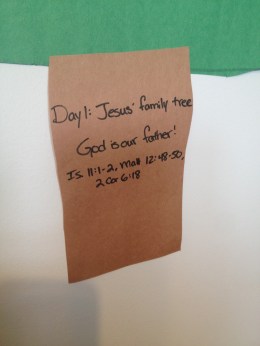 Day 1: Jesus' family tree
God is our father!
Is. 11:1-2, Matt 12:48-50,
2 Cor 6:18